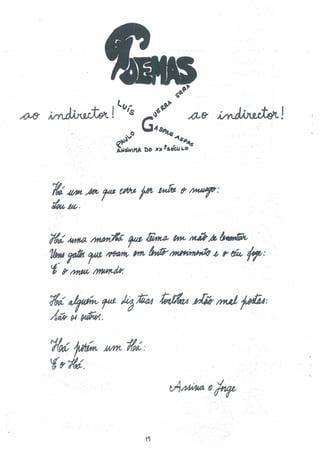 POEMAS
ao indirector!
ao indirector!
LUÍS GUERRA ERRA
PAULO GASPAR ASPAS
ANÓNIMA DO XXº SÉCULO
Há um ser que corre por entre o musgo:
Sou eu.
Há uma manhã que teima em não se levantar
Vejo gatos que voam em lento movimento e o céu foge:
É o meu mundo.
Há alguém que diz tuas toalhas estão mal postas:
São os outros.
Há porém um Há:
É o Há.
Assina o Jorge
19